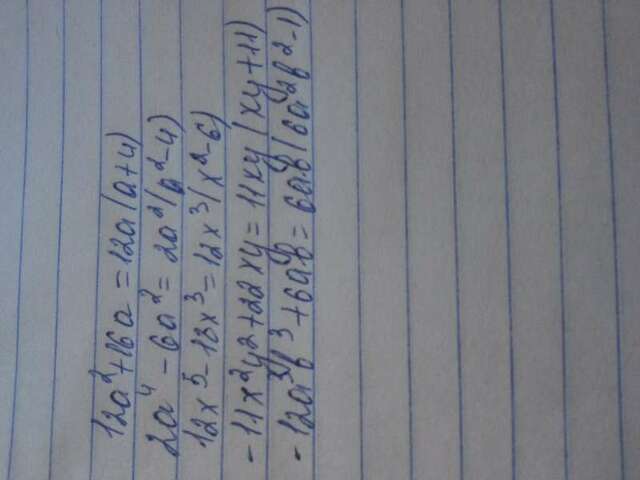 12a²+16a = 12a(a+4)
2a⁴ - 6a² = 2a²(a²-4)
12x⁵ - 18x³ = 12x³(x²-6)
-11x²y²+22xy = 11xy(xy+11)
-12a³b³+6ab = 6ab(6a²b²-1)